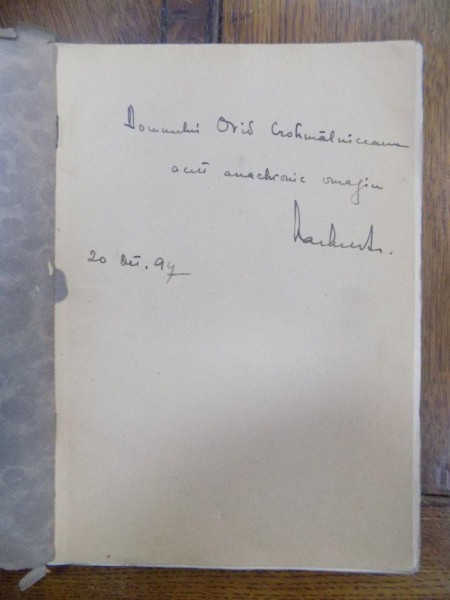 Domnului Ovid Crohmălniceanu
acest anachronic omagiu
20 Dec. 947